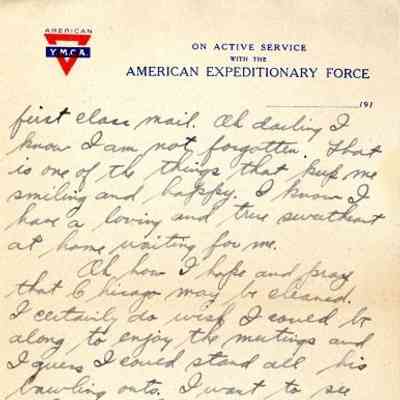 AMERICAN
Y.M.C.A.
ON ACTIVE SERVICE
WITH THE
AMERICAN EXPEDITIONARY FORCE
191
first class mail. Oh darling I
know I am not forgotten. That
is one of the things that kup me
smiling and happy. I know I
have a loving and true sweetheart
at home waiting for me.
Oh how I hope and pray
that Chicago may be cleaned.
I certainly do wish I could be
along to enjoy the meetings and
I guess I could stand all his
bawling outs. I want to see